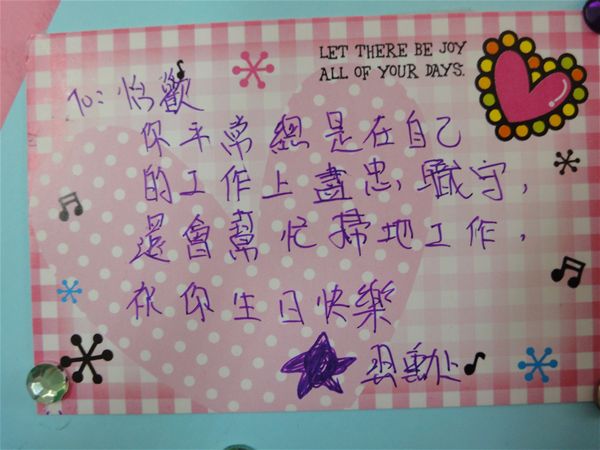 LET THERE BE JOY
ALL OF YOUR DAYS.
To: 怡歡
你平常總是在自己
的工作上盡忠職守,
還會幫忙掃地工作,
祝你生日快樂